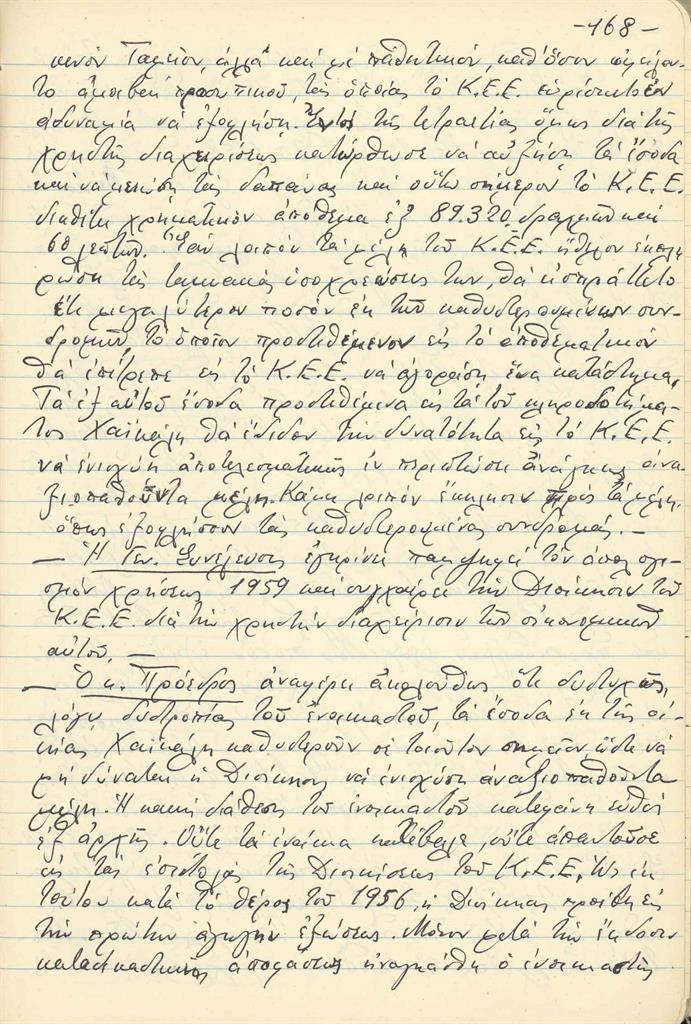 -168-
κενόν Ταμεῖον, ἀλλά καί μέ παθητικόν, καθ' ὅσον ὠφείλον-
το ἀμοιβαί προσωπικοῦ, τάς ὁποίας τό Κ.Ε.Ε. εὑρίσκετο ἐν
ἀδυναμίᾳ νά ἐξοφλήσῃ. Ἐντός τῆς τετραετίας ὅμως διά τῆς
χρηστῆς διαχειρίσεως κατώρθωσε νά αὐξήσῃ τά ἔσοδα
καί νά μειώσῃ τάς δαπάνας καί οὕτω σήμερον τό Κ.Ε.Ε.
διαθέτει χρηματικόν ἀπόθεμα ἐξ 89.320 δραχμῶν καί
60 λεπτῶν. Ἐάν λοιπόν τά μέλη τοῦ Κ.Ε.Ε. ἤθελον ἐκπλη-
ρώσῃ τάς ταμιακάς ὑποχρεώσεις των, θά εἰσπράττετο
ἔτι μεγαλύτερον ποσόν ἐκ τῶν καθυστερουμένων συν-
δρομῶν, τό ὁποῖον προστιθέμενον εἰς τό ἀποθεματικόν
θά ἐπέτρεπε εἰς τό Κ.Ε.Ε. νά ἀγοράσῃ ἕνα κατάστημα.
Τά ἐξ αὐτοῦ ἔσοδα προστιθέμενα εἰς τά τοῦ κληροδοτήμα-
τος Χαϊκάλη θά ἔδιδον τήν δυνατότητα εἰς τό Κ.Ε.Ε.
νά ἐνισχύῃ ἀποτελεσματικῶς ἐν περιπτώσει ἀνάγκης ἀνα-
ξιοπαθοῦντα μέλη. Κάμνει λοιπόν ἔκκλησιν πρός τά μέλη,
ὅπως ἐξοφλήσουν τάς καθυστερουμένας συνδρομάς. —
— Ἡ Γεν. Συνέλευσις ἐγκρίνει παμψηφεί τόν ἀπολογι-
σμόν χρήσεως 1959 καί συγχαίρει τήν Διοίκησιν τοῦ
Κ.Ε.Ε. διά τήν χρηστήν διαχείρισιν τῶν οἰκονομικῶν
αὐτοῦ. —
— Ὁ κ. Πρόεδρος ἀναφέρει ἀκολούθως ὅτι δυστυχῶς,
λόγῳ δυστροπίας τοῦ ἐνοικιαστοῦ, τά ἔσοδα ἐκ τῆς οἰ-
κίας Χαϊκάλη καθυστεροῦν σέ τοιοῦτον σημεῖον, ὥστε νά
μή δύναται ἡ Διοίκησις νά ἐνισχύσῃ ἀναξιοπαθοῦντα
μέλη. Ἡ κακή διάθεσις τοῦ ἐνοικιαστοῦ κατεφάνη εὐθύς
ἐξ ἀρχῆς. Οὔτε τά ἐνοίκια κατέβαλε, οὔτε ἀπαντοῦσε
εἰς τάς ἐπιστολάς τῆς Διοικήσεως τοῦ Κ.Ε.Ε. Ὡς ἐκ
τούτου κατά τό θέρος τοῦ 1956, ἡ Διοίκησις προέβη εἰς
τήν πρώτην ἀγωγήν ἐξώσεως. Μόνον μετά τήν ἔκδοσιν
καταδικαστικῆς ἀποφάσεως ἠναγκάσθη ὁ ἐνοικιαστής